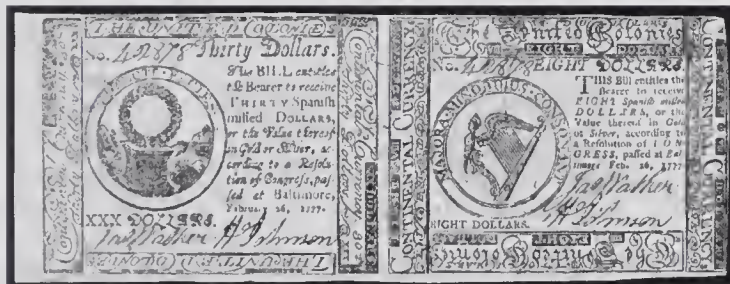 THE UNITED COLONIES
No. 42878 Thirty Dollars.
This BILL entitles
the Bearer to receive
THIRTY Spanish
milled DOLLARS,
or the Value thereof
in Gold or Silver, ac-
cording to a Resolu-
tion of Congress, pas-
sed at Baltimore,
February 26, 1777.
XXX DOLLARS.
Jas Walker H Johnson
THE UNITED COLONIES
Continental Currency
The United Colonies
EIGHT DOLLARS
No. 42878 EIGHT DOLLARS.
THIS Bill entitles the
Bearer to receive
EIGHT Spanish milled
DOLLARS, or the
Value thereof in Gold
or Silver, according to
a Resolution of CON
GRESS, passed at Bal
timore Feb. 26, 1777.
MAJORA MINORIBUS CONSONANT
Jas Walker
H Johnson
EIGHT DOLLARS.
CONTINENTAL CURRENCY
CONTINENTAL CURRENCY
The United Colonies